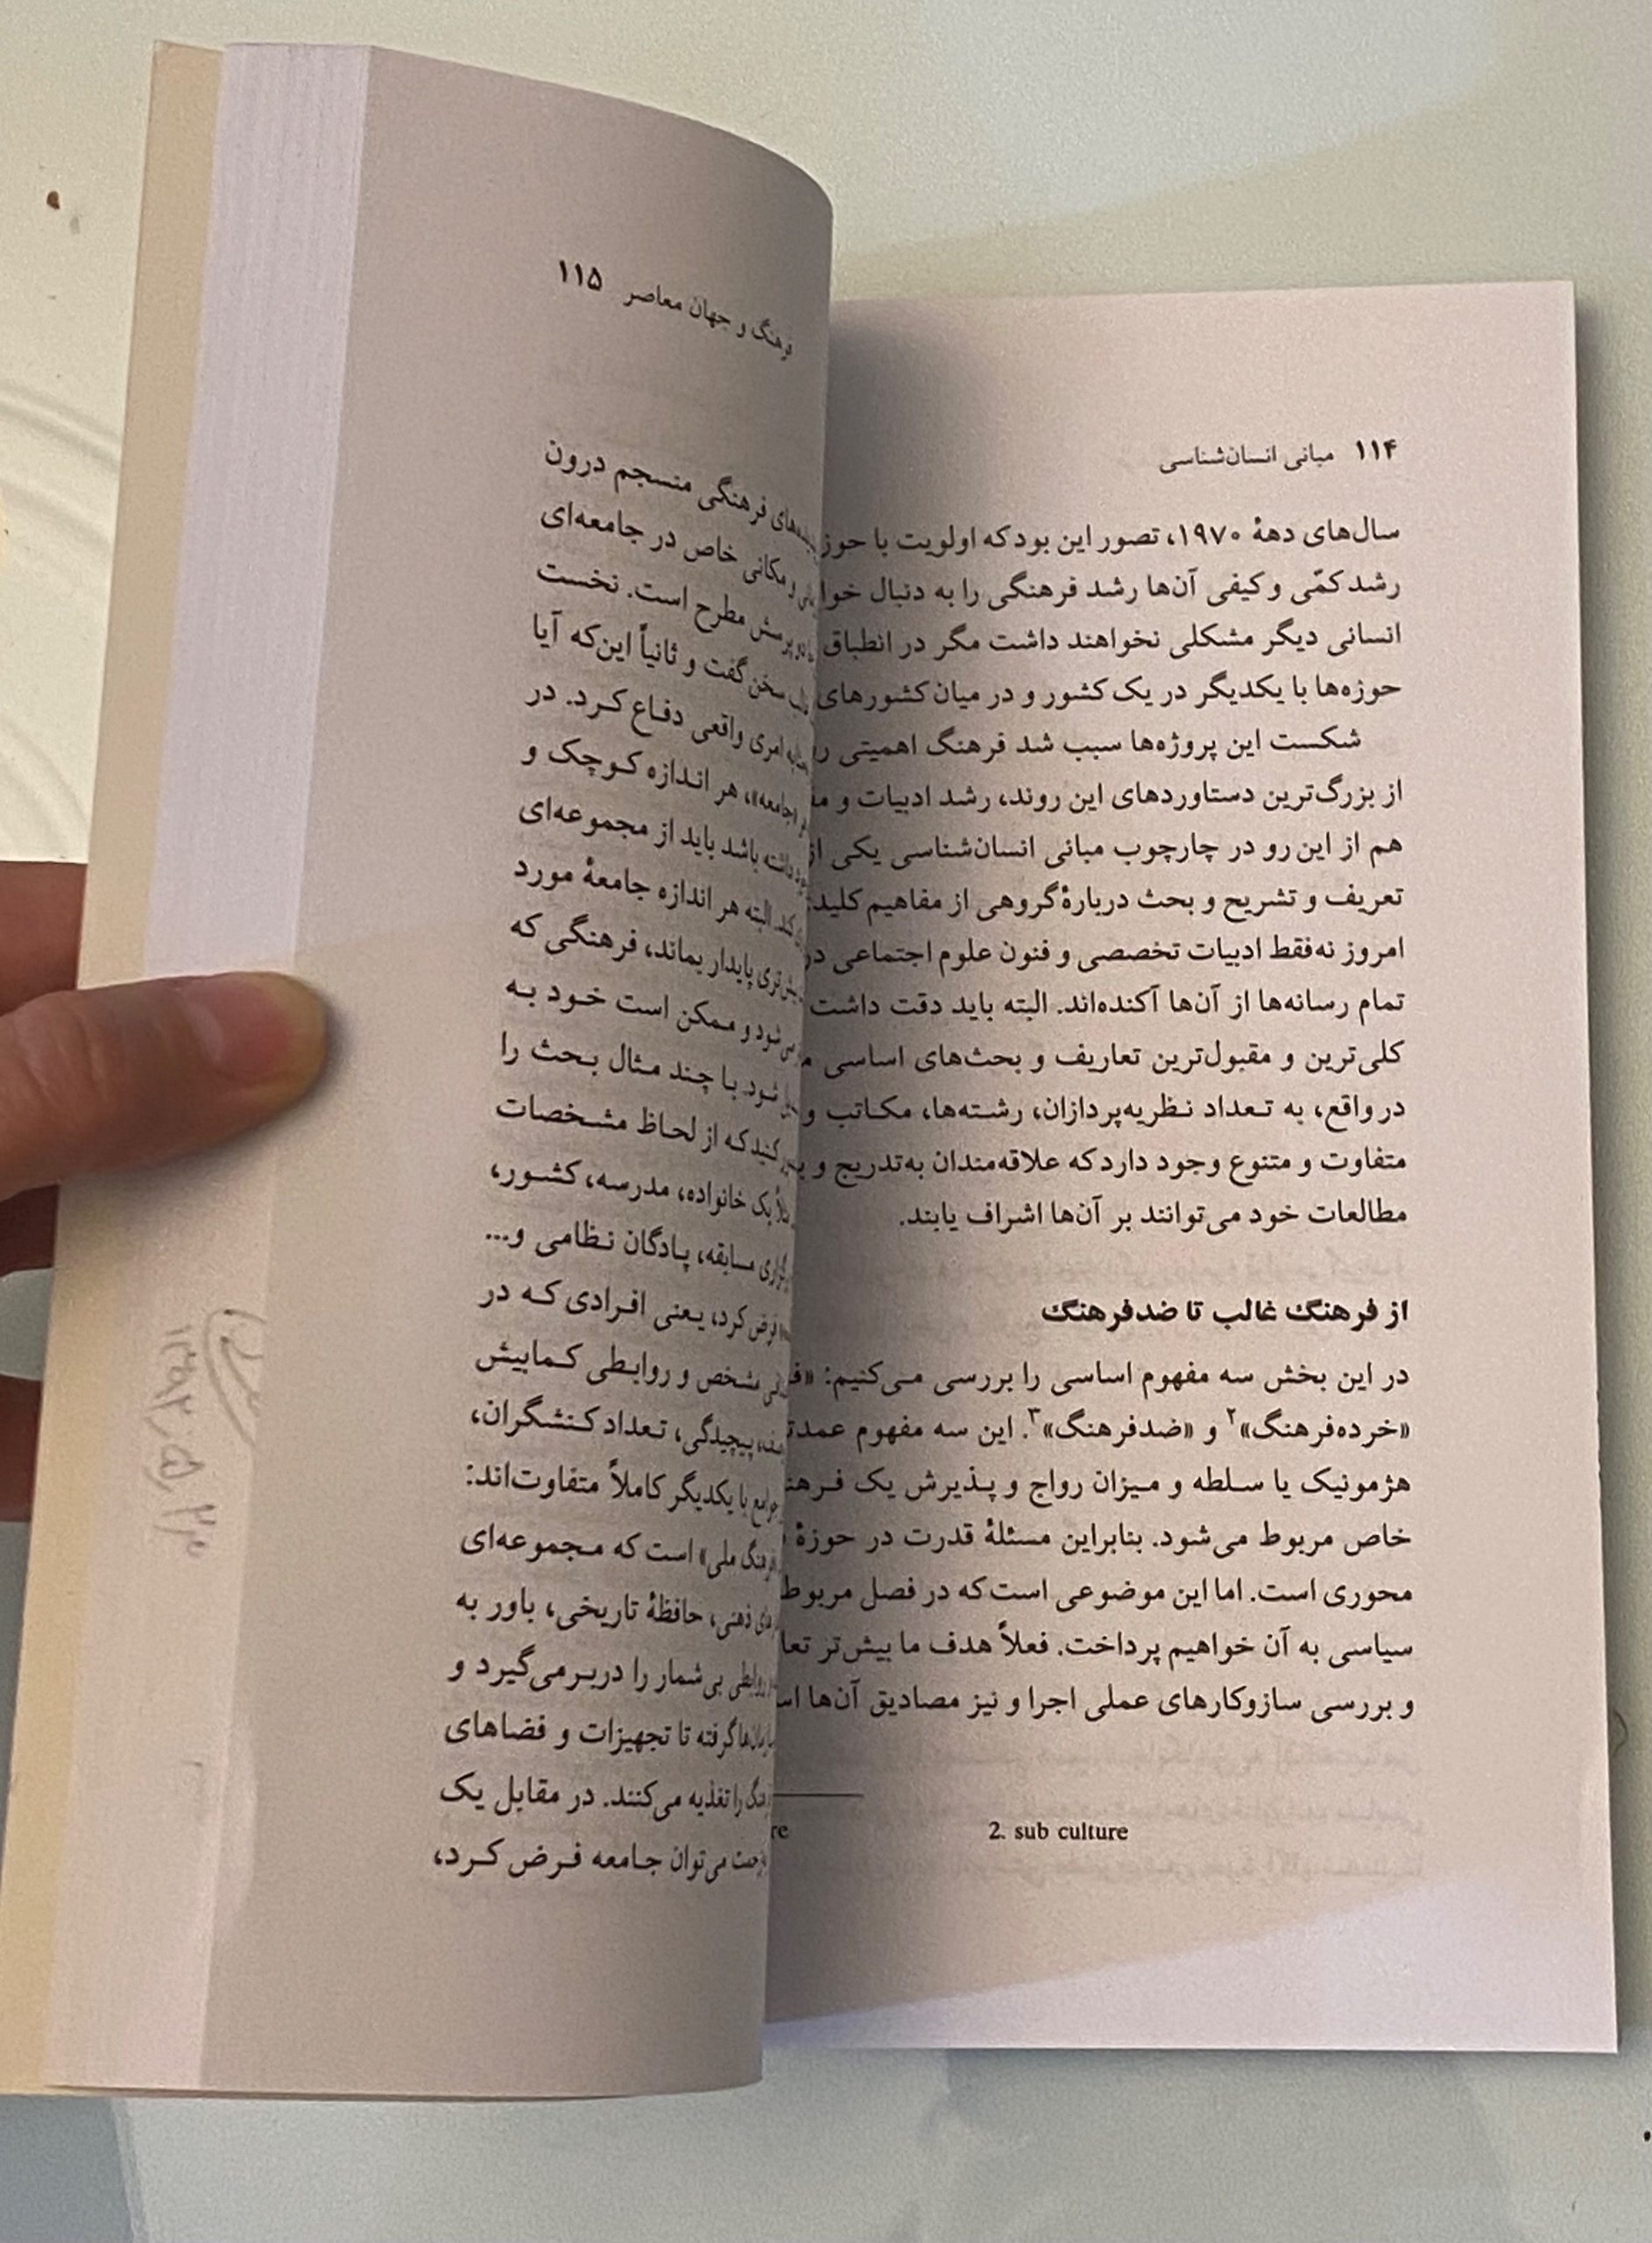 ۱۱۴ مبانی انسان‌شناسی
سال‌های دههٔ ۱۹۷۰، تصور این بود که اولویت با
رشد کمّی و کیفی آن‌ها رشد فرهنگی را به دنبال
انسانی دیگر مشکلی نخواهند داشت مگر در انطباق
حوزه‌ها با یکدیگر در یک کشور و در میان کشورهای
شکست این پروژه‌ها سبب شد فرهنگ اهمیتی
از بزرگ‌ترین دستاوردهای این روند، رشد ادبیات و
هم از این رو در چارچوب مبانی انسان‌شناسی یکی
تعریف و تشریح و بحث دربارهٔ گروهی از مفاهیم
امروز نه‌فقط ادبیات تخصصی و فنون علوم اجتماعی
تمام رسانه‌ها از آن‌ها آکنده‌اند. البته باید دقت داشت
کلی‌ترین و مقبول‌ترین تعاریف و بحث‌های اساسی
در واقع، به تعداد نظریه‌پردازان، رشته‌ها، مکاتب و
متفاوت و متنوع وجود دارد که علاقه‌مندان به‌تدریج و
مطالعات خود می‌توانند بر آن‌ها اشراف یابند.
از فرهنگ غالب تا ضدفرهنگ
در این بخش سه مفهوم اساسی را بررسی می‌کنیم:
«خرده‌فرهنگ»۲ و «ضدفرهنگ»۳. این سه مفهوم
هژمونیک یا سلطه و میزان رواج و پذیرش یک
خاص مربوط می‌شود. بنابراین مسئلهٔ قدرت در حوزهٔ
محوری است. اما این موضوعی است که در فصل مربوط
سیاسی به آن خواهیم پرداخت. فعلاً هدف ما بیش‌تر
و بررسی سازوکارهای عملی اجرا و نیز مصادیق آن‌ها
2. sub culture
فرهنگ و جهان معاصر ۱۱۵
فرهنگی منسجم درون
و مکانی خاص در جامعه‌ای
پرسش مطرح است. نخست
سخن گفت و ثانیاً این‌که آیا
امری واقعی دفاع کرد. در
«جامعه»، هر اندازه کوچک و
باشد باید از مجموعه‌ای
البته هر اندازه جامعهٔ مورد
پایدار بماند، فرهنگی که
می‌شود و ممکن است خود به
شود. با چند مثال بحث را
کنید که از لحاظ مشخصات
یک خانواده، مدرسه، کشور،
مسابقه، پادگان نظامی و...
فرض کرد، یعنی افرادی که در
مشخص و روابطی کمابیش
پیچیدگی، تعداد کنشگران،
با یکدیگر کاملاً متفاوت‌اند:
ملی» است که مجموعه‌ای
ذهنی، حافظهٔ تاریخی، باور به
بی‌شمار را دربرمی‌گیرد و
گرفته تا تجهیزات و فضاهای
را تغذیه می‌کنند. در مقابل یک
می‌توان جامعه فرض کرد،